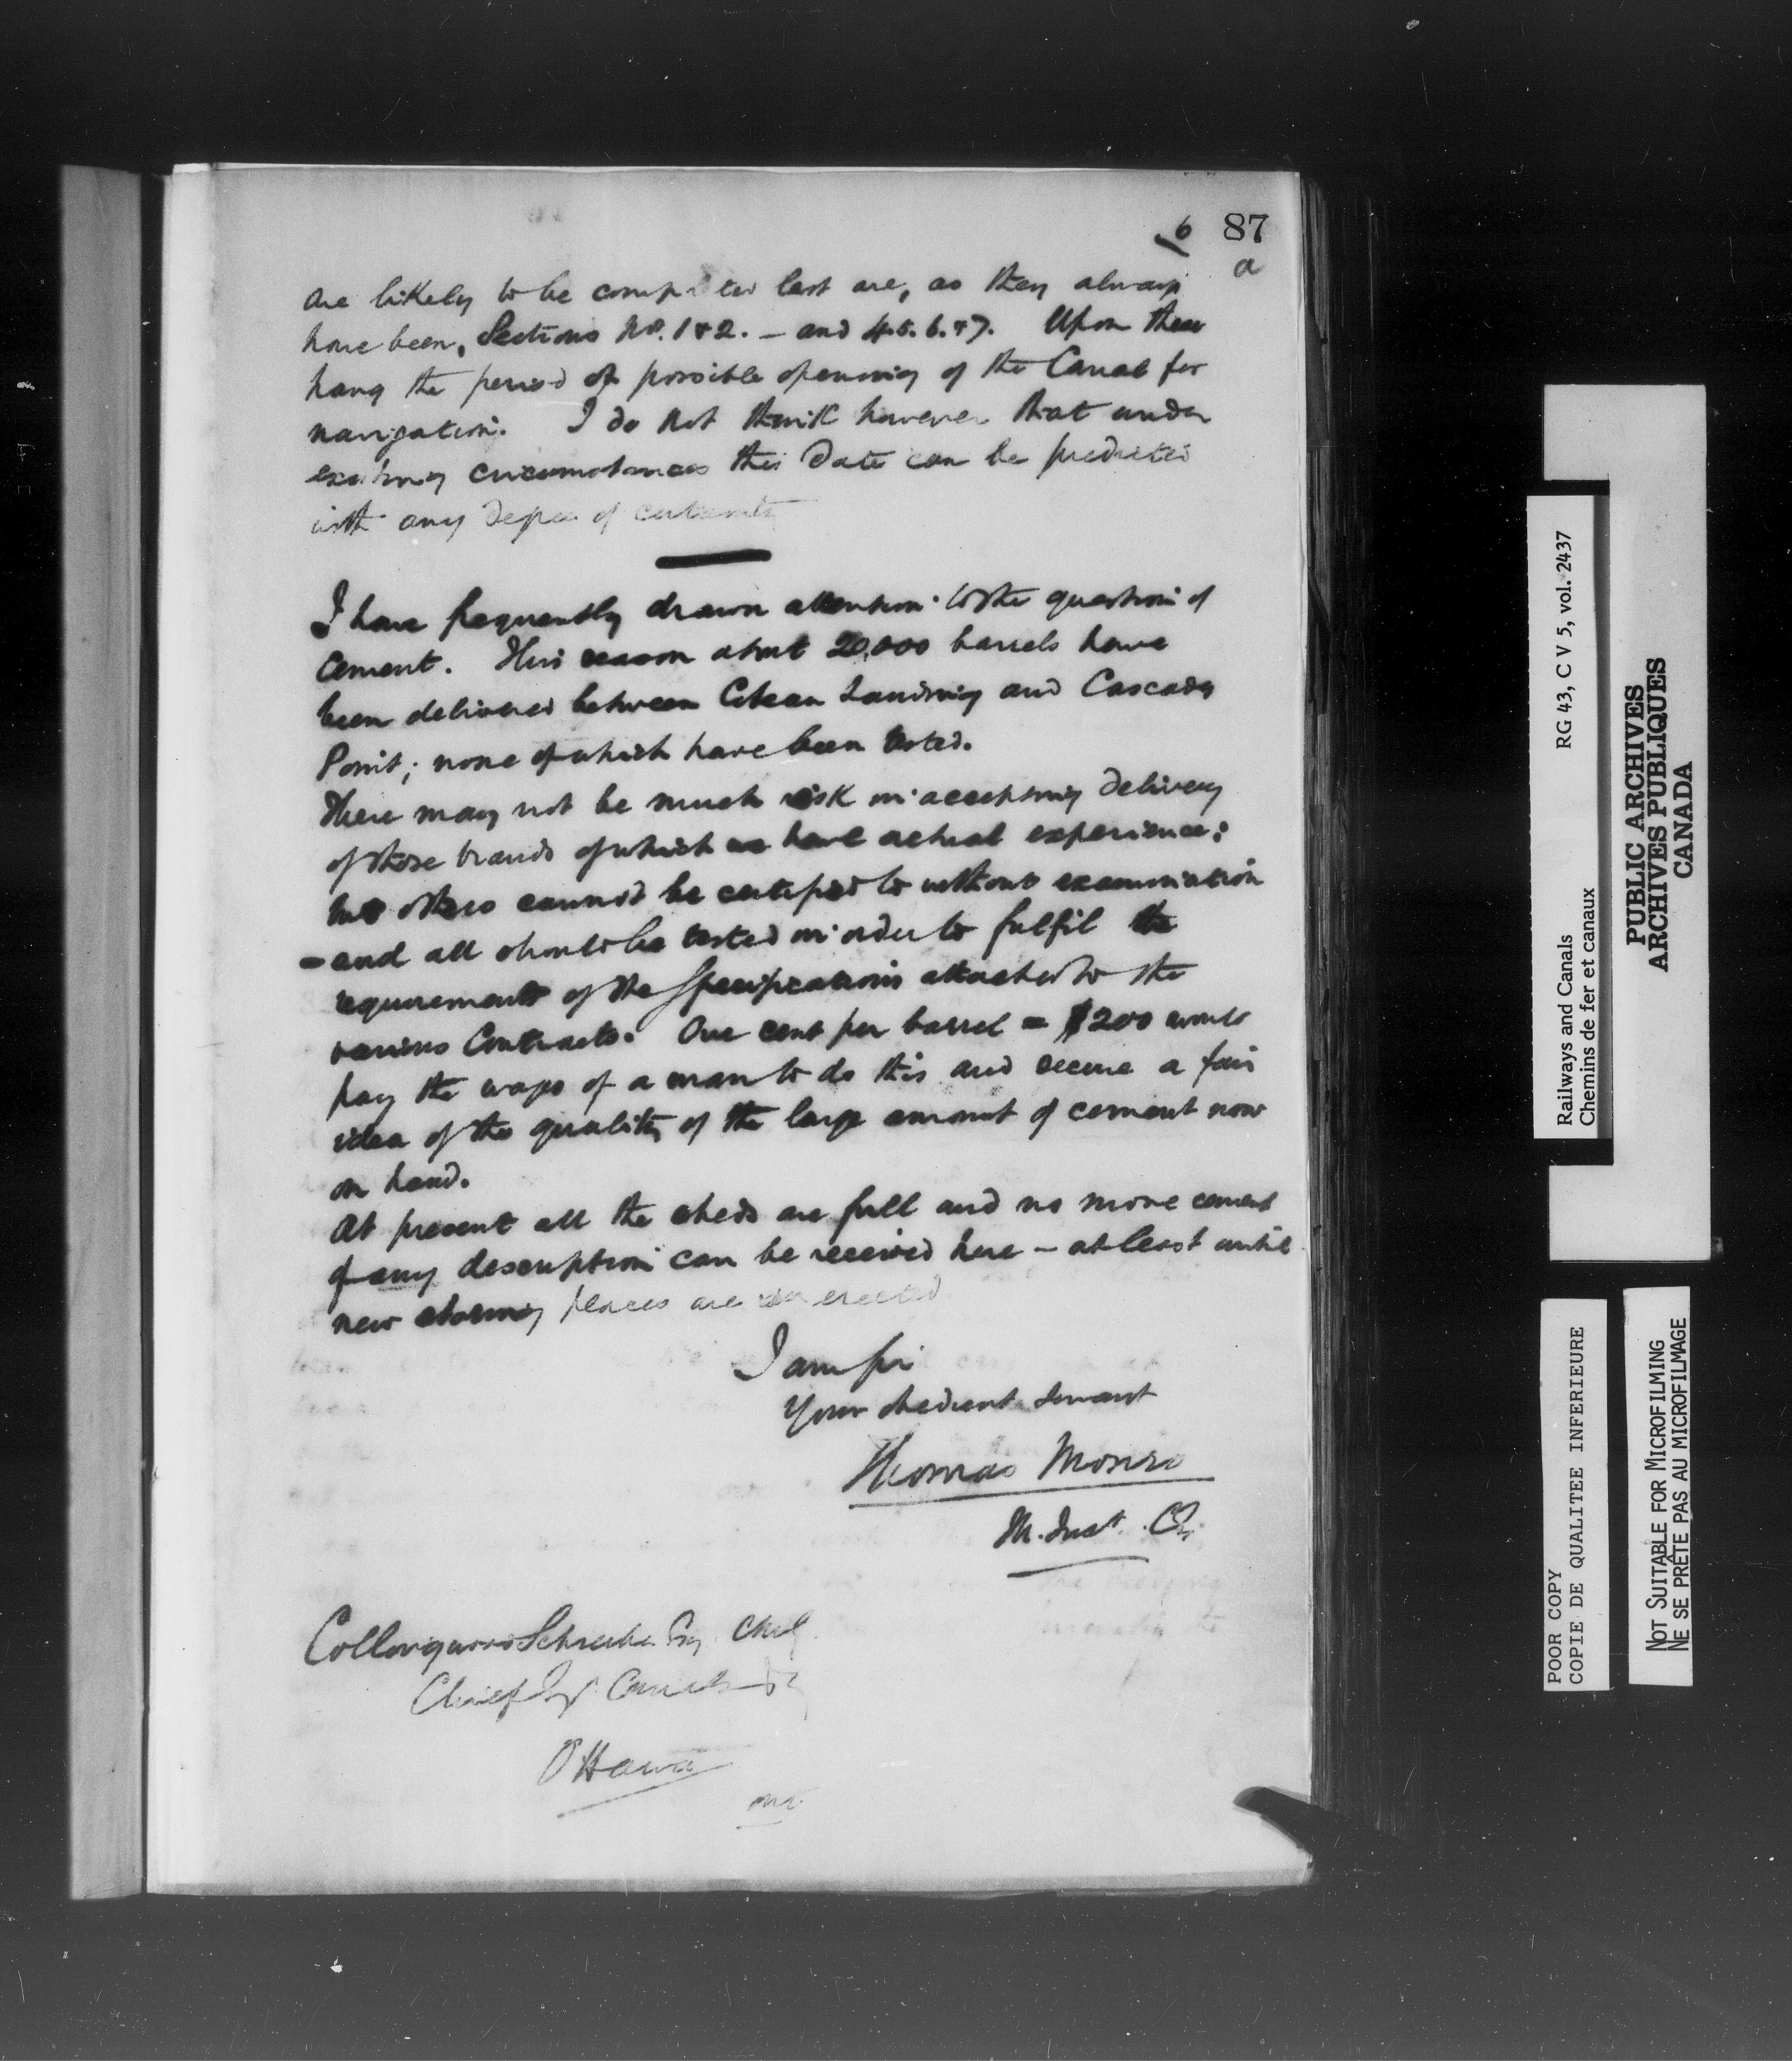 6 87
a
are likely to be completed last are, as they always
have been, Sections No. 1 & 2. – and 4. 5. 6. & 7. Upon these
hang the period of possible opening of the Canal for
navigation. I do not think however that under
existing circumstances this date can be predicted
with any degree of certainty
I have frequently drawn attention to the question of
Cement. This season about 20,000 barrels have
been delivered between Coteau Landing and Cascades
Point; none of which have been tested.
There may not be much risk in accepting delivery
of those brands of which we have actual experience;
but others cannot be certified to without examination
– and all should be tested in order to fulfil the
requirements of the Specifications attached to the
various Contracts. One cent per barrel = $200 would
pay the wages of a man to do this and secure a fair
idea of the quality of the large amount of cement now
on hand.
At present all the sheds are full and no more cement
of any description can be received here – at least until
new storing places are erected
I am Sir
Your obedient servant
Thomas Monro
M. Inst. CE.
Collingwood Schreiber Esq
Chief Canals
Ottawa
Ont.
Railways and Canals RG 43, C V 5, vol. 2437
Chemins de fer et canaux
PUBLIC ARCHIVES
ARCHIVES PUBLIQUES
CANADA
POOR COPY
COPIE DE QUALITEE INFERIEURE
NOT SUITABLE FOR MICROFILMING
NE SE PRÊTE PAS AU MICROFILMAGE